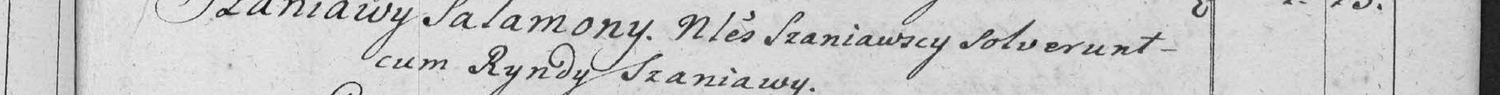 Szaniawy Salamony. Nles Szaniawscy Solverunt
cum Ryndy Szaniawy.